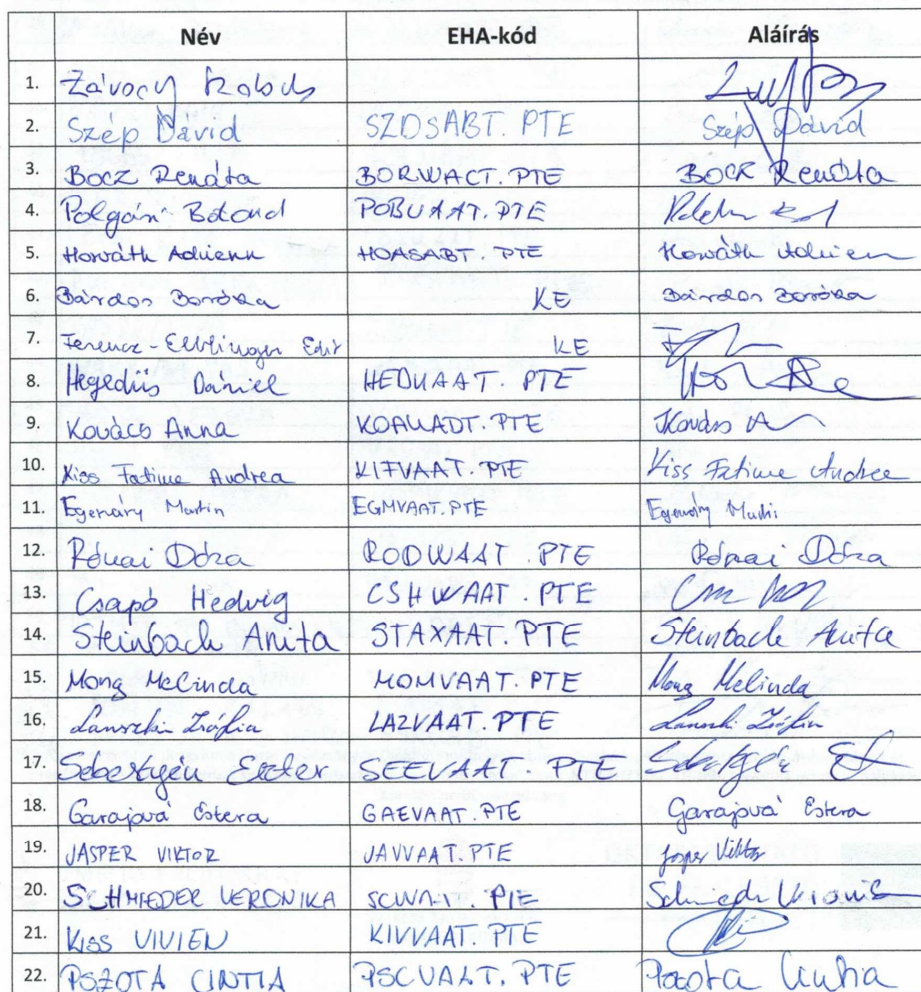 Név EHA-kód Aláírás
1. Závory
2. Szép Dávid SZDSABT.PTE Szép Dávid
3. Bocz Renáta BORWACT.PTE Bocz Renáta
4. Polgári Botond POBUAAT.PTE
5. Horváth Adrienn HOASABT.PTE Horváth Adrienn
6. Bárdos Boróka KE Bárdos Boróka
7. Ferencz-Elblinger Edit KE
8. Hegedüs Dániel HEDUAAT.PTE
9. Kovács Anna KOAWADT.PTE Kovács A
10. Kiss Fatime Andrea KIFVAAT.PTE Kiss Fatime Andrea
11. Egerváry Martin EGMVAAT.PTE Egerváry Martin
12. Rónai Dóra RODWAAT.PTE Rónai Dóra
13. Csapó Hedvig CSHWAAT.PTE
14. Steinbach Anita STAXAAT.PTE Steinbach Anita
15. Mong Melinda MOMVAAT.PTE Mong Melinda
16. Lanszki Zsófia LAZVAAT.PTE Lanszki Zsófia
17. Sebestyén Eszter SEEVAAT.PTE
18. Garajová Estera GAEVAAT.PTE Garajová Estera
19. JASPER VIKTOR JAVVAAT.PTE Jasper Viktor
20. SCHMIEDER VERONIKA PTE Schmieder Veronik
21. KISS VIVIEN KIVVAAT.PTE
22. PSZOTA CINTIA PSCVAAT.PTE Pszota Cintia